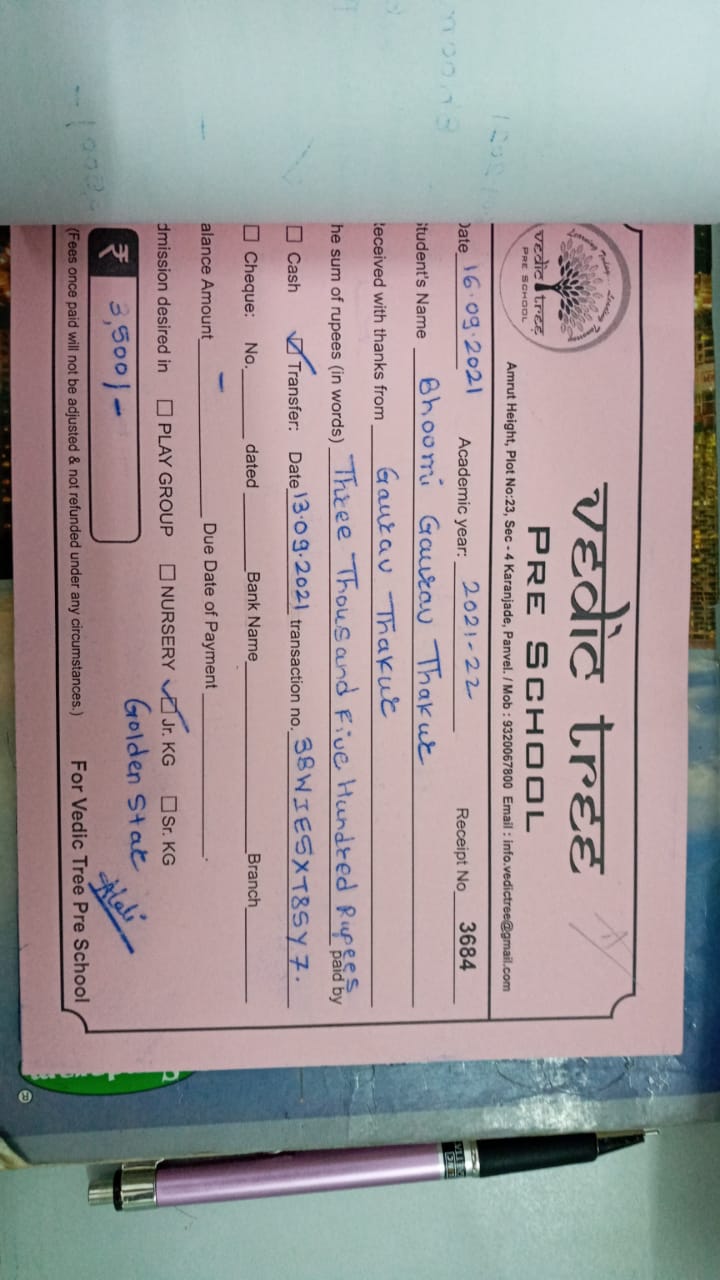 vedic tree
PRE SCHOOL
Learning Today.. Leading Tomorrow
vedic tree
PRE SCHOOL
Amrut Height, Plot No:23, Sec - 4 Karanjade, Panvel. / Mob : 9320067800 Email : info.vedictree@gmail.com
Date 16.09.2021 Academic year: 2021-22 Receipt No 3684
Student's Name Bhoomi Gaurav Thakur
Received with thanks from Gaurav Thakur
he sum of rupees (in words) Three Thousand Five Hundred Rupees paid by
☐ Cash ☑ Transfer: Date 13.09.2021 transaction no. 38WIE5XT85Y7.
☐ Cheque: No. dated Bank Name Branch
alance Amount - Due Date of Payment
dmission desired in ☐ PLAY GROUP ☐ NURSERY ☑ Jr. KG ☐ Sr. KG
Golden Star
₹ 3,500/-
(Fees once paid will not be adjusted & not refunded under any circumstances.) For Vedic Tree Pre School